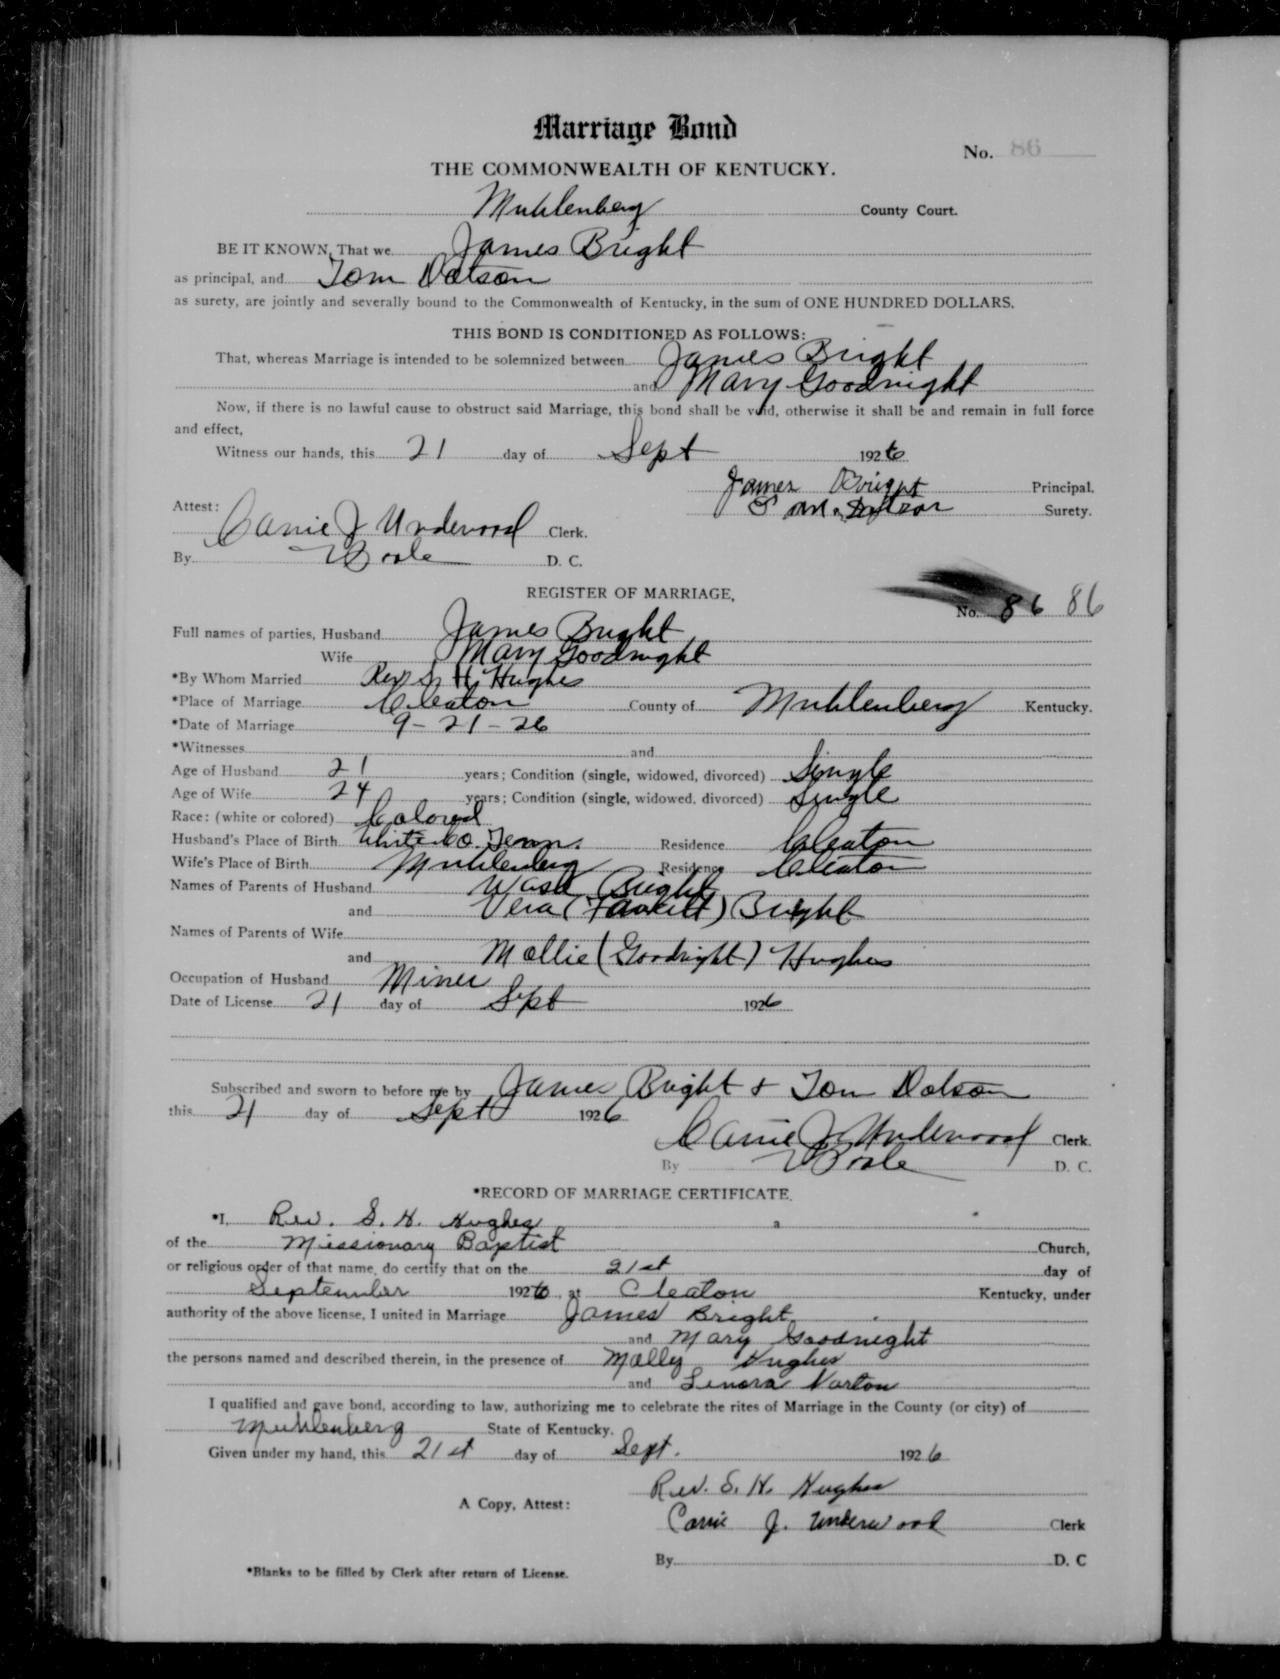 Marriage Bond
No. 86
THE COMMONWEALTH OF KENTUCKY.
Muhlenberg County Court.
BE IT KNOWN, That we James Bright
as principal, and Tom Dotson
as surety, are jointly and severally bound to the Commonwealth of Kentucky, in the sum of ONE HUNDRED DOLLARS.
THIS BOND IS CONDITIONED AS FOLLOWS:
That, whereas Marriage is intended to be solemnized between James Bright
and Mary Goodnight
Now, if there is no lawful cause to obstruct said Marriage, this bond shall be void, otherwise it shall be and remain in full force
and effect,
Witness our hands, this 21 day of Sept 1926
James Bright Principal.
Attest: Surety.
Carrie J Underwood Clerk.
By D. C.
REGISTER OF MARRIAGE,
No. 86 86
Full names of parties, Husband James Bright
Wife Mary Goodnight
*By Whom Married Rev S. H. Hughes
*Place of Marriage Cleaton County of Muhlenberg Kentucky.
*Date of Marriage 9-21-26
*Witnesses and
Age of Husband 21 years; Condition (single, widowed, divorced) Single
Age of Wife 24 years; Condition (single, widowed, divorced) Single
Race: (white or colored) Colored
Husband's Place of Birth White Co. Tenn. Residence Cleaton
Wife's Place of Birth Muhlenberg Residence Cleaton
Names of Parents of Husband Wash Bright
and Vera ( ) Bright
Names of Parents of Wife
and Mollie (Goodnight) Hughes
Occupation of Husband Miner
Date of License 21 day of Sept 1926
Subscribed and sworn to before me by James Bright & Tom Dotson
this 21 day of Sept 1926
Carrie J. Underwood Clerk.
By D. C.
*RECORD OF MARRIAGE CERTIFICATE.
*I, Rev. S. H. Hughes a
of the Missionary Baptist Church,
or religious order of that name, do certify that on the 21st day of
September 1926 at Cleaton Kentucky, under
authority of the above license, I united in Marriage James Bright
and Mary Goodnight
the persons named and described therein, in the presence of Molly Hughes
and Lenora Norton
I qualified and gave bond, according to law, authorizing me to celebrate the rites of Marriage in the County (or city) of
Muhlenberg State of Kentucky.
Given under my hand, this 21st day of Sept. 1926
Rev. S. H. Hughes
A Copy, Attest:
Carrie J. Underwood Clerk
By D. C
*Blanks to be filled by Clerk after return of License.